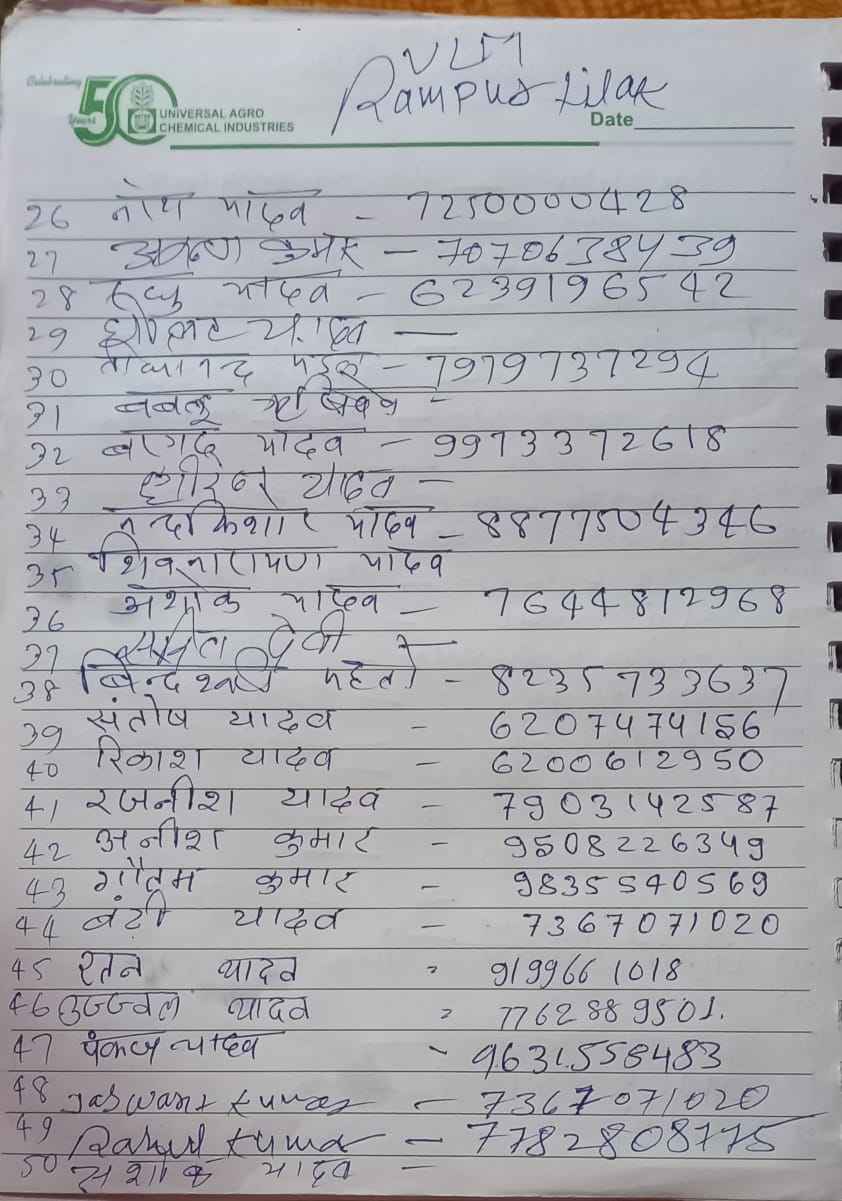 VLM
Rampur Tilak
Celebrating 50 Years
UNIVERSAL AGRO
CHEMICAL INDUSTRIES
Date
26 यादव - 7250000428
27 कुमार - 7070638439
28 यादव - 6239196542
29 यादव -
30 - 7979737294
31 बबलू ऋषिदेव -
32 यादव - 9973372618
33 धीरेन्द्र यादव -
34 नन्दकिशोर यादव - 8877504346
35 शिवनारायण यादव
36 अशोक यादव - 7644812968
37 देवी -
38 बिन्देश्वरी महतो - 8235733637
39 संतोष यादव - 6207474156
40 रिकाश यादव - 6200612950
41 रजनीश यादव - 7903142587
42 अनीश कुमार - 9508226349
43 गौतम कुमार - 9835540569
44 बंटी यादव - 7367071020
45 रतन यादव - 9199661018
46 उज्जवल यादव - 7762889501.
47 पंकज यादव - 9631558483
48 Jaswant kumar - 7367071020
49 Rahul kumar - 7782808775
50 यादव -